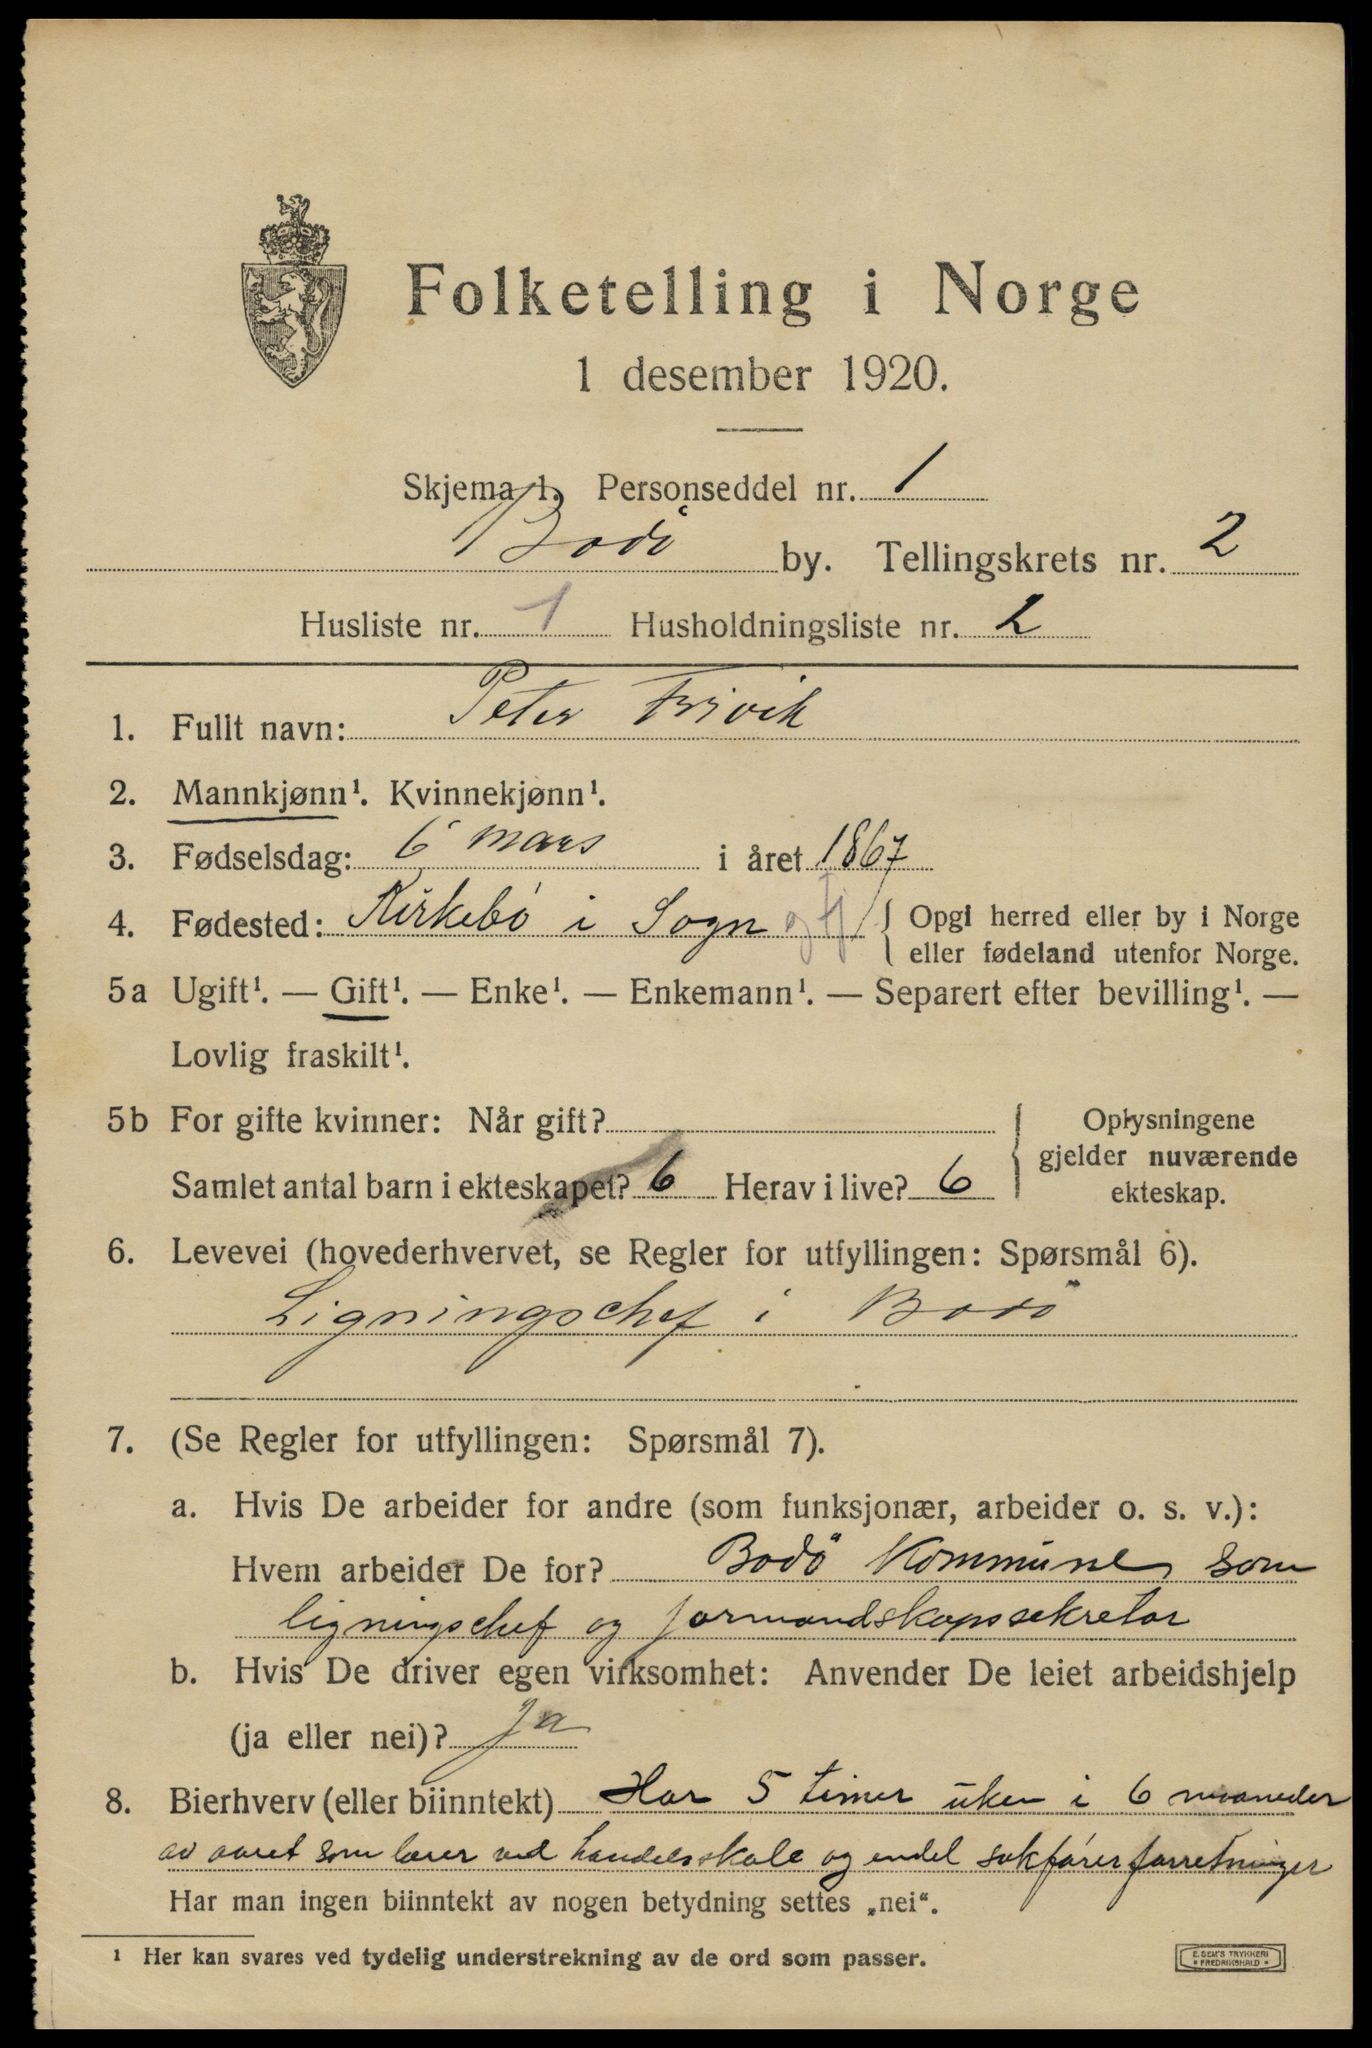 Folketelling i Norge
1 desember 1920.
Skjema 1. Personseddel nr. 1
Bodö by. Tellingskrets nr. 2
Husliste nr. 1 Husholdningsliste nr. 2
1. Fullt navn: Peter Trivik
2. Mannkjønn¹. Kvinnekjønn¹.
3. Fødselsdag: 6 mars i året 1867
4. Fødested: Kirkebö i Sogn og fj { Opgi herred eller by i Norge
eller fødeland utenfor Norge.
5a Ugift¹. — Gift¹. — Enke¹. — Enkemann¹. — Separert efter bevilling¹. —
Lovlig fraskilt¹.
5b For gifte kvinner: Når gift? { Oplysningene
gjelder nuværende
Samlet antal barn i ekteskapet? 6 Herav i live? 6
ekteskap.
6. Levevei (hovederhvervet, se Regler for utfyllingen: Spørsmål 6).
Ligningschef i Bodö
7. (Se Regler for utfyllingen: Spørsmål 7).
a. Hvis De arbeider for andre (som funksjonær, arbeider o. s. v.):
Hvem arbeider De for? Bodö Kommune som
ligningschef og formandskapssekretær
b. Hvis De driver egen virksomhet: Anvender De leiet arbeidshjelp
(ja eller nei)? Ja
8. Bierhverv (eller biinntekt) Har 5 timer uken i 6 maaneder
av aaret som lærer ved handelsskole og endel sakförerforretninger
Har man ingen biinntekt av nogen betydning settes „nei“.
¹ Her kan svares ved tydelig understrekning av de ord som passer.
E. SEM'S TRYKKERI
* FREDRIKSHALD *